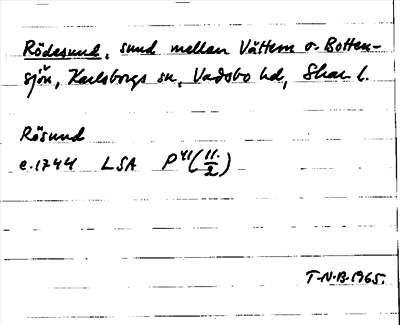 Rödesund, sund mellan Vättern o. Botten-
sjön, Karlsborgs sn, Vadsbo hd, Skar. l.
Rösund
c. 1744 LSA P 41 (11/2)
T-N.B. 1965.